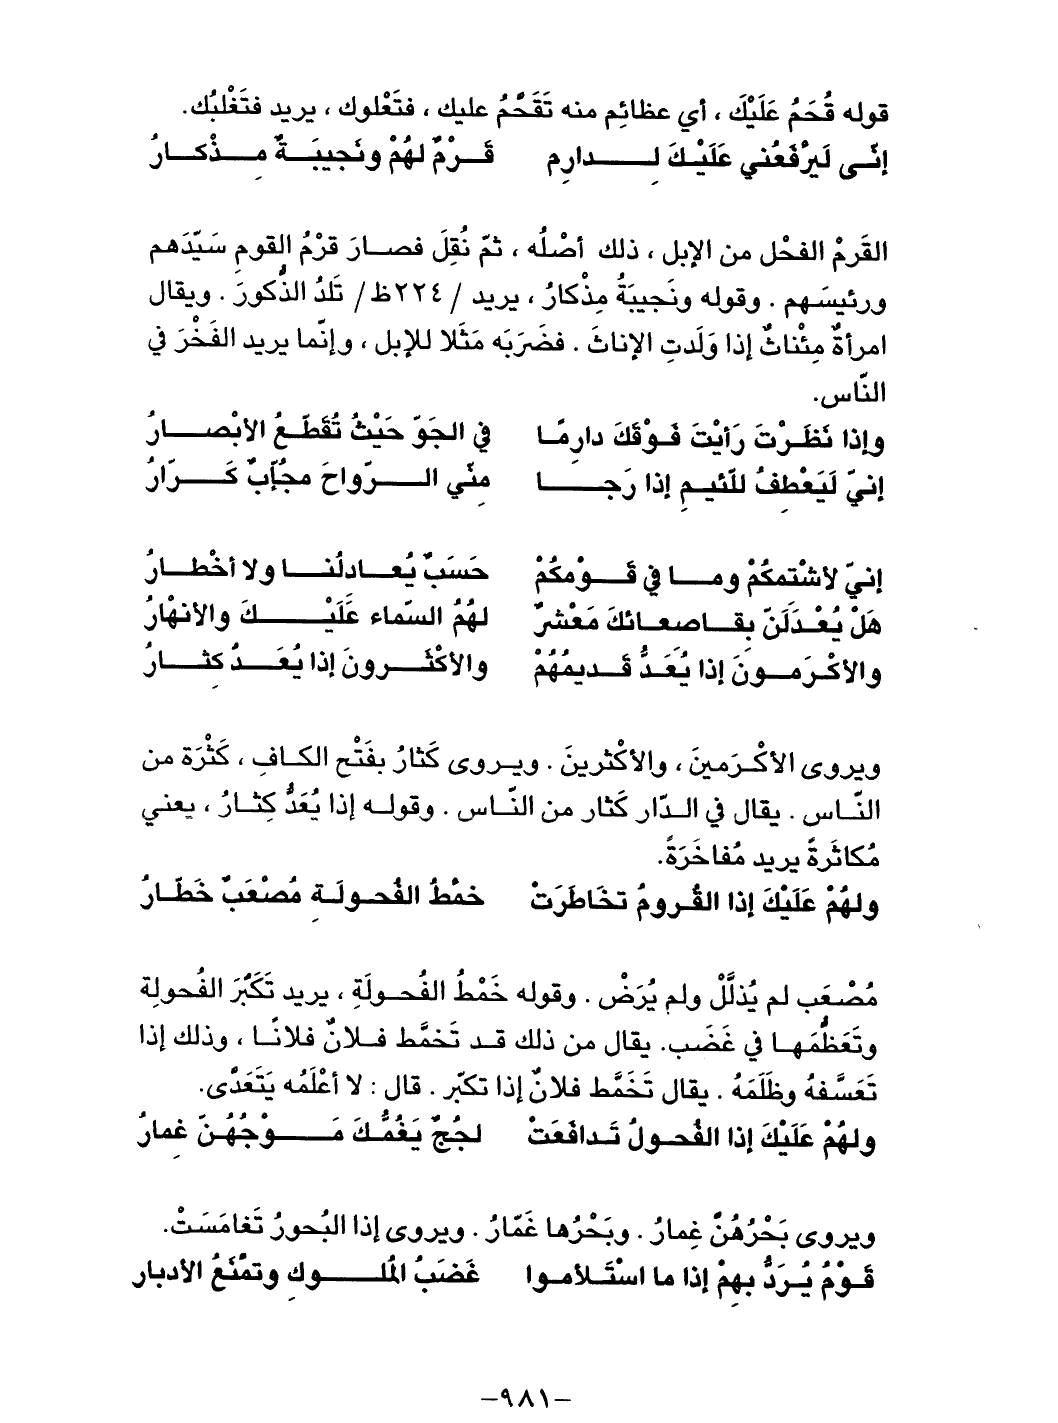 قوله قُحَمُ عَلَيْكَ ، أي عظائِم منه تَقَحَّمُ عليك ، فتَعْلوك ، يريد فتَغْلبُك.
إنّى لَيَرْفَعُني عَلَيْكَ لِدارِمٍ قَرْمٌ لهُمْ ونَجيبَةٌ مِذْكارُ
القَرمْ الفحْل من الإبل ، ذلك أصْلُه ، ثمّ نُقِلَ فصارَ قرْمُ القومِ سَيّدَهم
ورئيسَهم . وقوله ونَجيبَةُ مِذْكارُ ، يريد /٢٢٤ظ/ تَلدُ الذُّكورَ . ويقال
امرأةٌ مِئْناثٌ إذا وَلَدتِ الإناثَ . فضَرَبَه مَثَلا للإبل ، وإنّما يريد الفَخْرَ في
النّاس.
وإذا نَظَرْتَ رَأيْتَ فَوْقَكَ دارِمًا في الجَوّ حَيْثُ تُقَطّعُ الأبْصارُ
إنيّ لَيَعْطِفُ للّئيمِ إذا رَجا مِنّي الرّواحَ مجُرَّبٌ كَرّارُ
إنيّ لأشْتمكُمْ وما في قَوْمكُمْ حَسَبٌ يُعادلُنا ولا أخْطارُ
هَلْ يُعْدَلَنّ بِقاصعائكَ مَعْشرٌ لهُمُ السّماء عَلَيْكَ والأنهْارُ
والأكْرَمونَ إذا يُعَدُّ قَديمُهُمْ والأكْثَرونَ إذا يُعَدُ كثارُ
ويروى الأكْرَمينَ ، والأكْثرينَ . ويروى كَثارُ بفَتْح الكافِ ، كَثْرَة من
النّاس . يقال في الدّار كَثار من النّاس . وقوله إذا يُعَدُّ كِثارُ ، يعني
مُكاثَرةً يريد مُفاخَرَةً.
ولهُمْ عَلَيْكَ إذا القُرومُ تخَاطَرَتْ خمْطُ الفُحولَةِ مُصْعَبٌ خَطّارُ
مُصْعَب لم يُذلَّلْ ولم يُرَضْ . وقوله خَمْطُ الفُحولَةِ ، يريد تَكَبّرَ الفُحولةِ
وتَعَظُّمَها في غَضَب. يقال من ذلك قد تَخمَّط فلانٌ فلانًا ، وذلك إذا
تَعَسَّفهُ وظَلَمَهُ . يقال تَخَمَّط فلانٌ إذا تكبّر . قال : لا أعْلَمُه يَتَعَدَّى.
ولهُمْ عَلَيْكَ إذا الفُحولُ تَدافَعَتْ لجُجٌ يَغُمُّكَ مَوْجُهُنّ غِمارُ
ويروى بَحْرُهُنَّ غِمارُ . وبَحْرُها غَمّارُ . ويروى إذا البُحورُ تَغامَسَتْ.
قَوْمُ يُرَدُّ بهِمْ إذا ما اسْتَلأموا غَضَبُ المُلوكِ وتمُنَعُ الأدبار
–٩٨١–